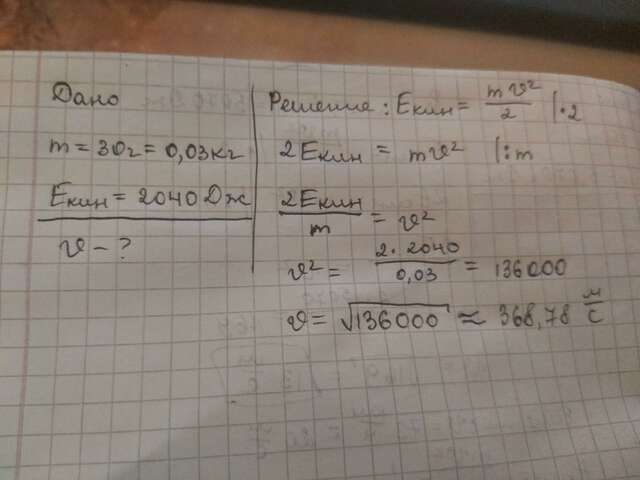 Дано
m = 30г = 0,03кг
Eкин = 2040 Дж
v - ?
Решение: Eкин = mv²/2 |·2
2Eкин = mv² |:m
2Eкин/m = v²
v² = 2·2040/0,03 = 136000
v = √136000 ≈ 368,78 м/с